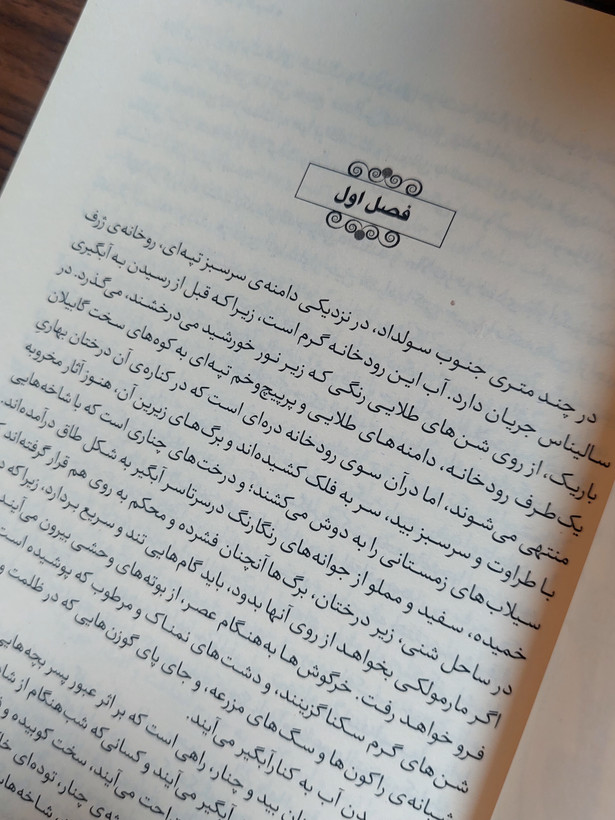 فصل اول
در چند متری جنوب سولداد، در نزدیکی دامنه‌ی سرسبز تپه‌ای، رودخانه‌ی ژرف
سالیناس جریان دارد. آب این رودخانه گرم است، زیرا که قبل از رسیدن به آبگیری
باریک، از روی شن‌های طلایی رنگی که زیر نور خورشید می‌درخشند، می‌گذرد. در
یک طرف رودخانه، دامنه‌های طلایی و پرپیچ‌وخم تپه‌ای به کوه‌های سخت گابیلان
منتهی می‌شوند، اما درآن سوی رودخانه دره‌ای است که در کناره‌ی آن درختان بهاریِ
با طراوت و سرسبز بید، سر به فلک کشیده‌اند و برگ‌های زیرین آن، هنوز آثار مخروبه
سیلاب‌های زمستانی را به دوش می‌کشند؛ و درخت‌های چناری است که با شاخه‌هایی
خمیده، سفید و مملو از جوانه‌های رنگارنگ درسرتاسر آبگیر به شکل طاق درآمده‌اند.
در ساحل شنی، زیر درختان، برگ‌ها آنچنان فشرده و محکم به روی هم قرار گرفته‌اند
اگر مارمولکی بخواهد از روی آنها بدود، باید گام‌هایی تند و سریع بردارد، زیرا که
فرو خواهد رفت. خرگوش‌ها به‌هنگام عصر، از بوته‌های وحشی بیرون می‌آیند
شن‌های گرم سکنا گزینند، و دشت‌های نمناک و مرطوب که پوشیده است
شبانه‌ی راکون‌ها و سگ‌های مزرعه، و جای پای گوزن‌هایی که در ظلمت و
دن آب به کنار آبگیر می‌آیند.
بید و چنار، راهی است که بر اثر عبور پسر بچه‌هایی
آبگیر می‌آیند و کسانی که شب‌هنگام از
می‌آیند، سخت کوبیده و
چنار، توده‌ای